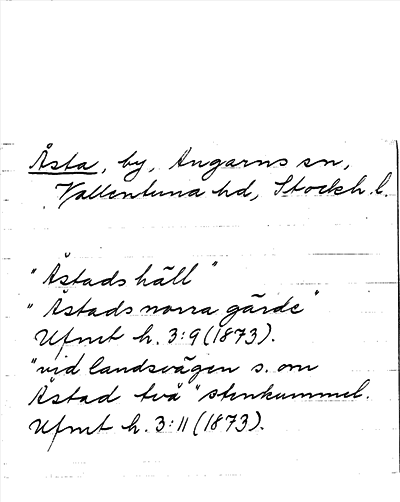 Åsta, by, Angarns sn,
Vallentuna hd, Stockh. l.
"Åstads häll"
"Åstads norra gärde"
Ufmt h. 3:9 (1873).
"vid landsvägen s. om
Åstad två" stenkummel.
Ufmt h. 3:11 (1873).